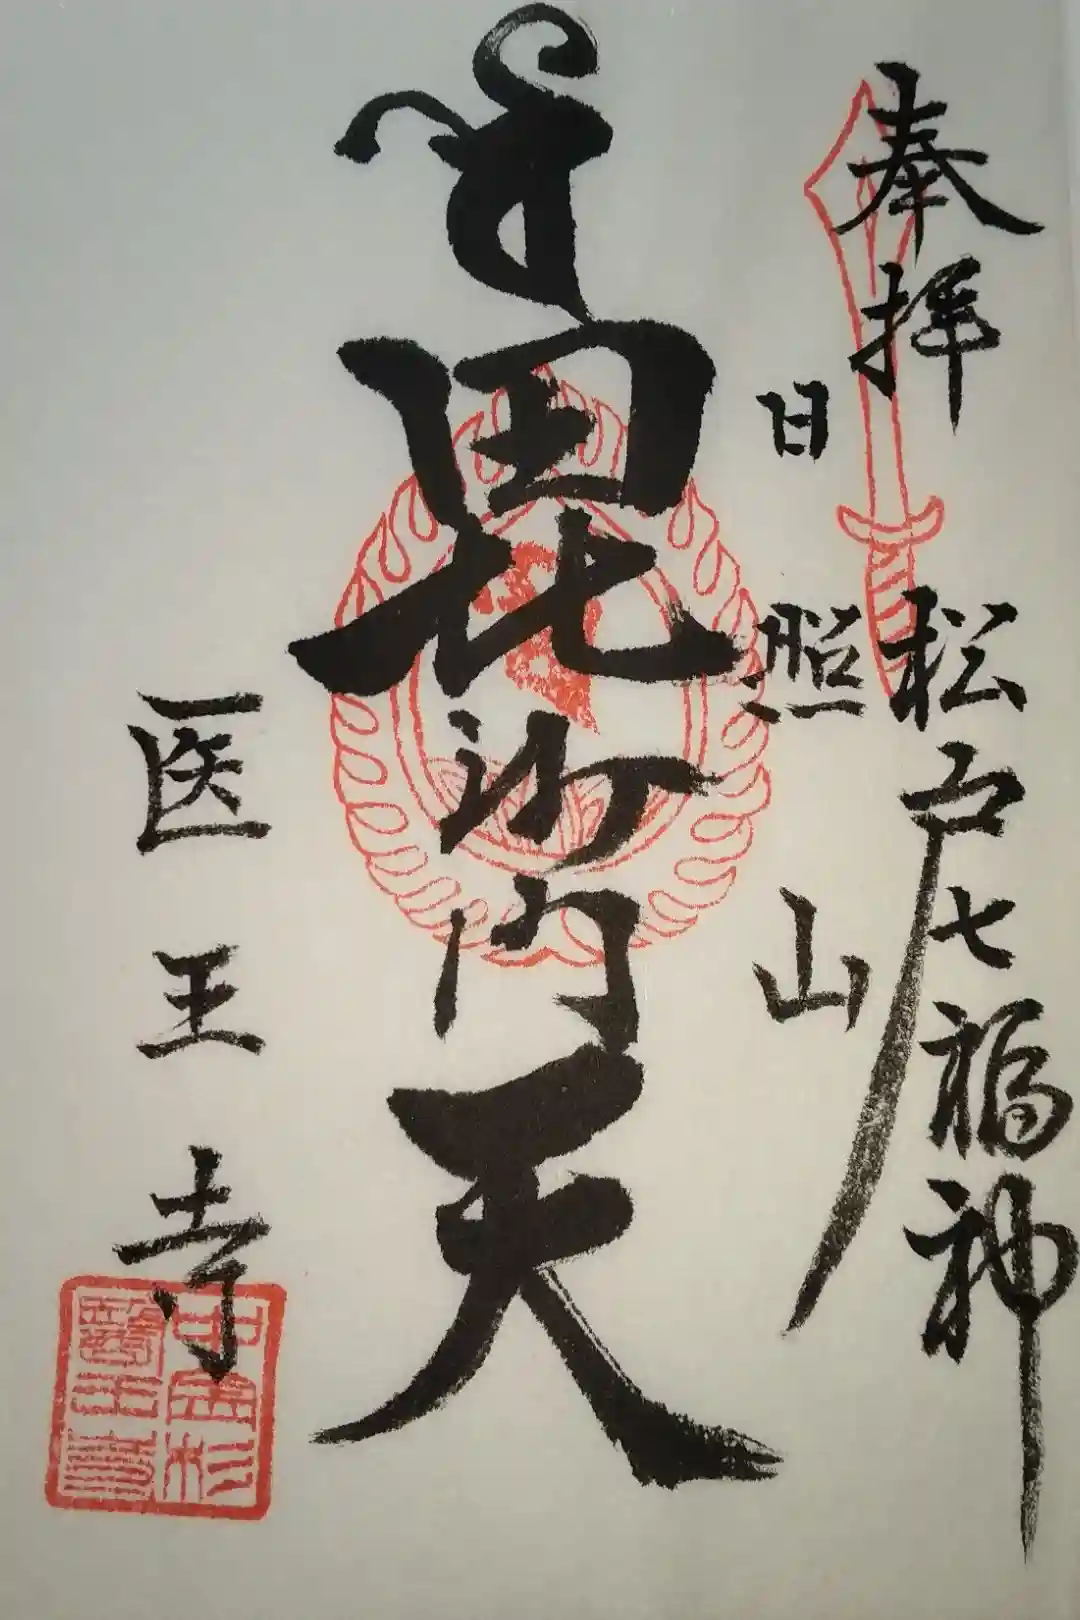 奉拝
松戸七福神
日照山
毘沙門天
医王寺
中金杉
醫王寺